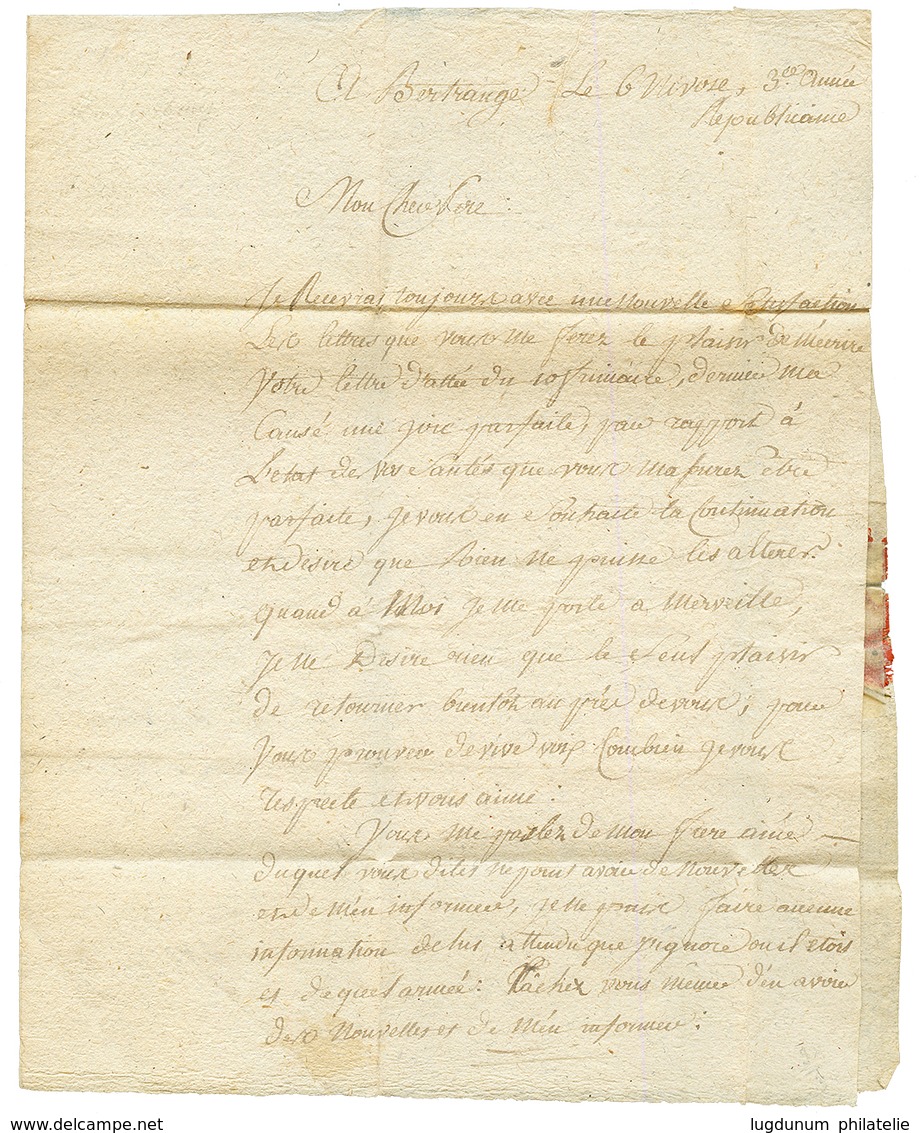 A Bertrange Le 6 Nivose, 3ee Année
Republicaine
Mon Cher Pere :
Je Recevrai toujours avec une Nouvelle Satisfaction
Les lettres que vous me ferez le plaisir de M'ecrire
Votre lettre dattée du 10 frimaire, dernier ma
Causé une joie parfaite, par rapport à
L'etat de vos Santés que vous Massurez être
parfaite, je vous en Souhaite la Continuation
et desire que Rien ne puisse les alterer.
quand à Moi je me porte a Merveille,
je ne Desire rien que le Seul plaisir
de retourner bientôt au près de vous, pour
Vous prouver de vive voix Combien je vous
respecte et vous aime.
Vous me parlez de mon frere ainé
duquel vous dites ne point avoir de nouvelles
et de M'en informer, je ne puis faire aucune
information de lui attendu que j'ignore ou il etois
et de quel armée : Tâchez vous même d'en avoir
des Nouvelles et de M'en informer :
www.delcampe.net
lugdunum philatelie